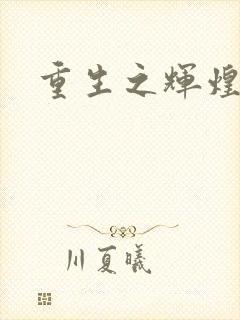 重生之辉煌
川夏曦